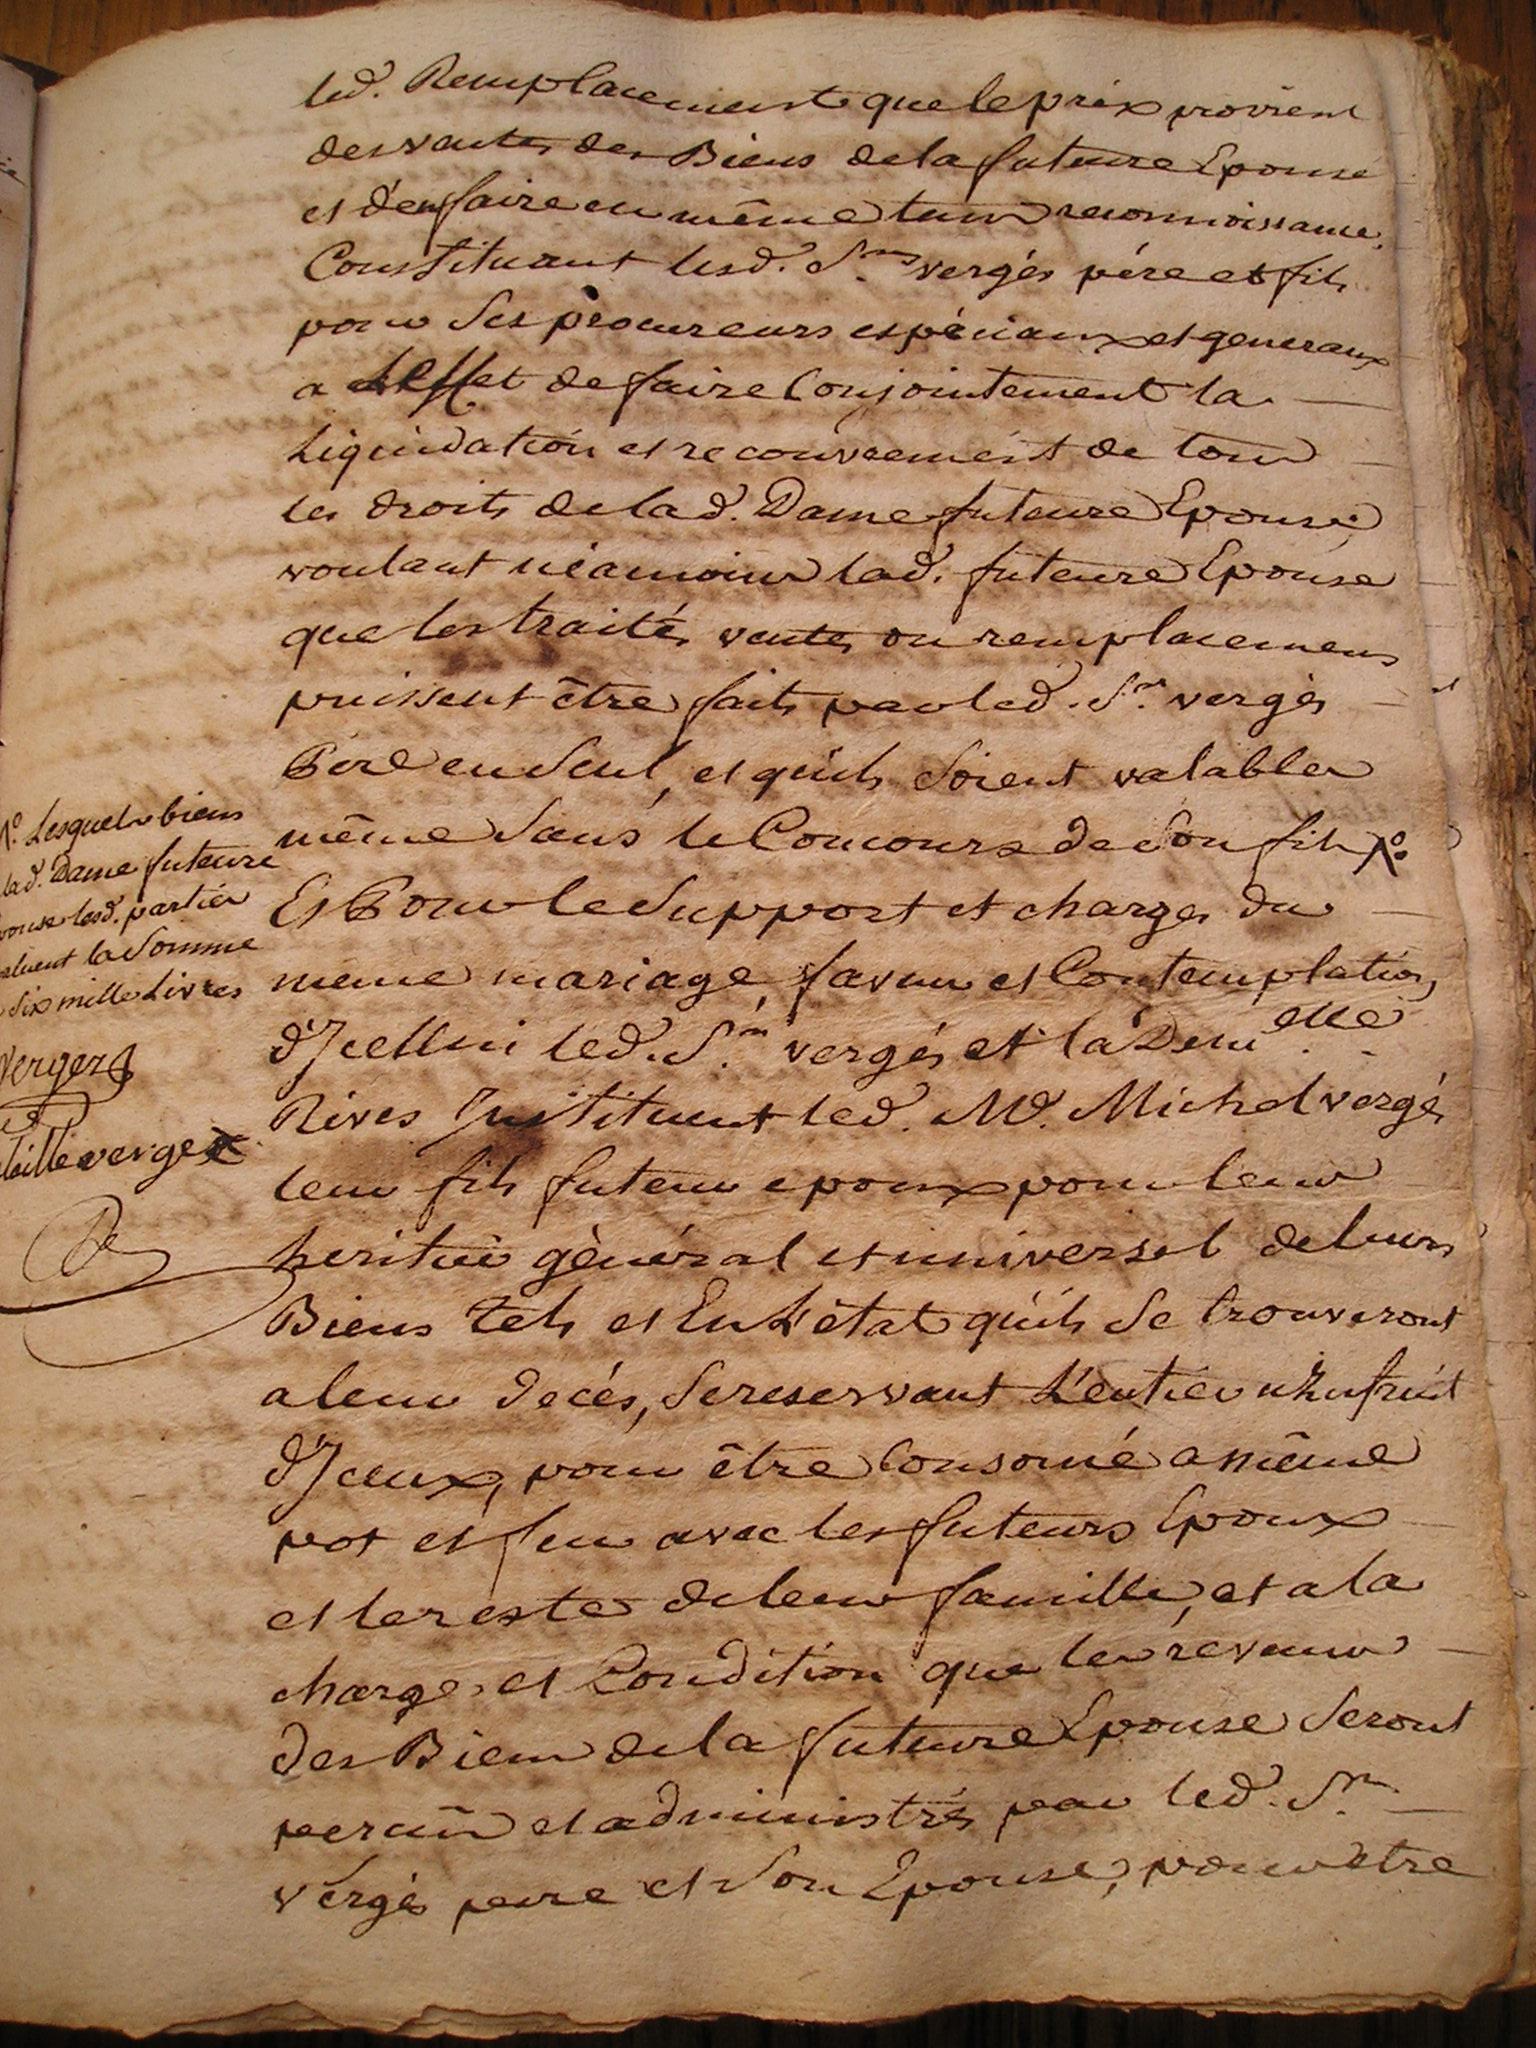 led. Remplacement que le prix provient
des ventes des Biens de la future Epouse
et d'en faire en même tems reconnoissance.
Constituant lesd. Srs vergés pére et fils
pour ses procureurs espéciaux et generaux
a L'effet de faire Conjointement la
Liquidation et recouvrement de tous
les droits de lad. Dame future Epouse,
voulant néamoins lad. future Epouse
que les traités ventes ou remplacemens
puissent être faits par led. Sr. vergés
Pere en Seul, et quils Soient valables
même Sans le Concours de Son fils No.
Et Pour le Support et charges du
meme mariage, faveur et Contemplation
d'Jcellui led. Sr. vergés et la Demlle
Rives Jnstituent led. Me. Michel vergés
leur fils futeur epoux pour leur
heritier général et universel de leurs
Biens tels et En L'état qu'ils Se trouveront
a leur decés, Se reservant L'entier uzufruit
d'Jceux, pour être Consomé a même
pot et feu avec les futeurs Epoux
et le reste de leur famille, et a la
charge et Condition que les revenus
des Biens de la future Epouse Seront
percus et administrés par led. Sr.
vergés pere et Son Epouse, pour être
No. Lesquels biens
lad. Dame future
Epouse lesd. parties
evaluent la Somme
Six mille Livres
Verges
verges